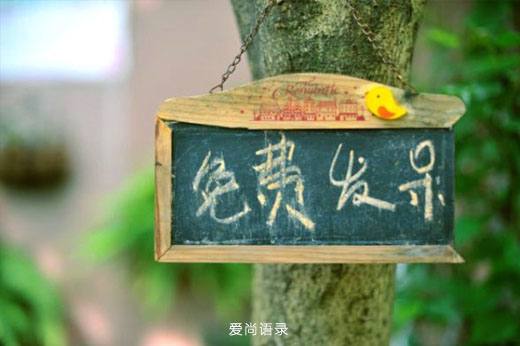 免费发呆
爱尚语录